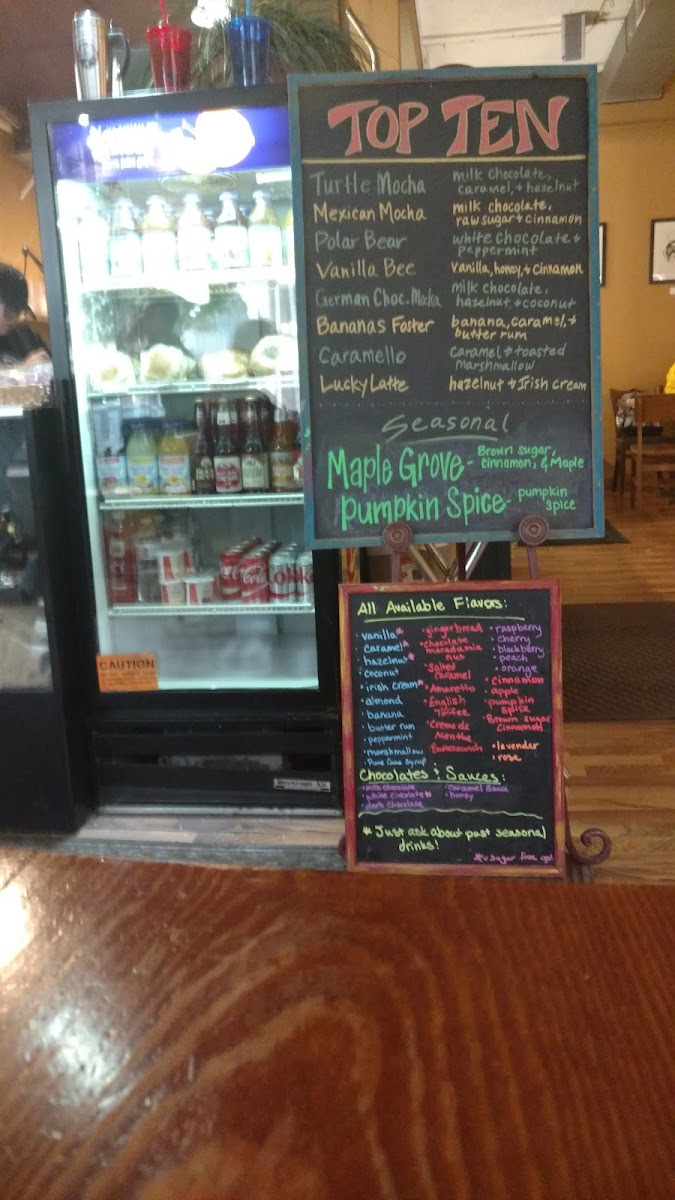 TOP TEN
Turtle Mocha milk chocolate,
caramel, + hazelnut
Mexican Mocha milk chocolate,
raw sugar + cinnamon
Polar Bear white chocolate +
peppermint
Vanilla Bee vanilla, honey, + Cinnamon
German Choc. Mocha milk chocolate,
hazelnut + coconut
Bananas Foster banana, caramel, +
butter rum
Caramello Caramel + toasted
Marshmallow
Lucky Latte hazelnut + Irish cream
Seasonal
Maple Grove - Brown sugar,
cinnamon, & Maple
Pumpkin Spice - pumpkin
spice
All Available Flavors:
vanilla*
caramel*
hazelnut*
coconut
irish cream*
almond
banana
butter rum
peppermint
marshmallow
Pure Cane Syrup
gingerbread
chocolate
macadamia
nut
Salted
caramel
Amaretto
English
Toffee
Creme de
Menthe
Butterscotch
raspberry
cherry
blackberry
peach
orange
cinnamon
apple
pumpkin
spice
Brown sugar
cinnamon
lavender
rose
Chocolates & Sauces:
milk chocolate
white chocolate*
dark chocolate
caramel sauce
honey
* Just ask about past seasonal
drinks!
sugar free opt.
CAUTION
Beverage-Air
Coca-Cola